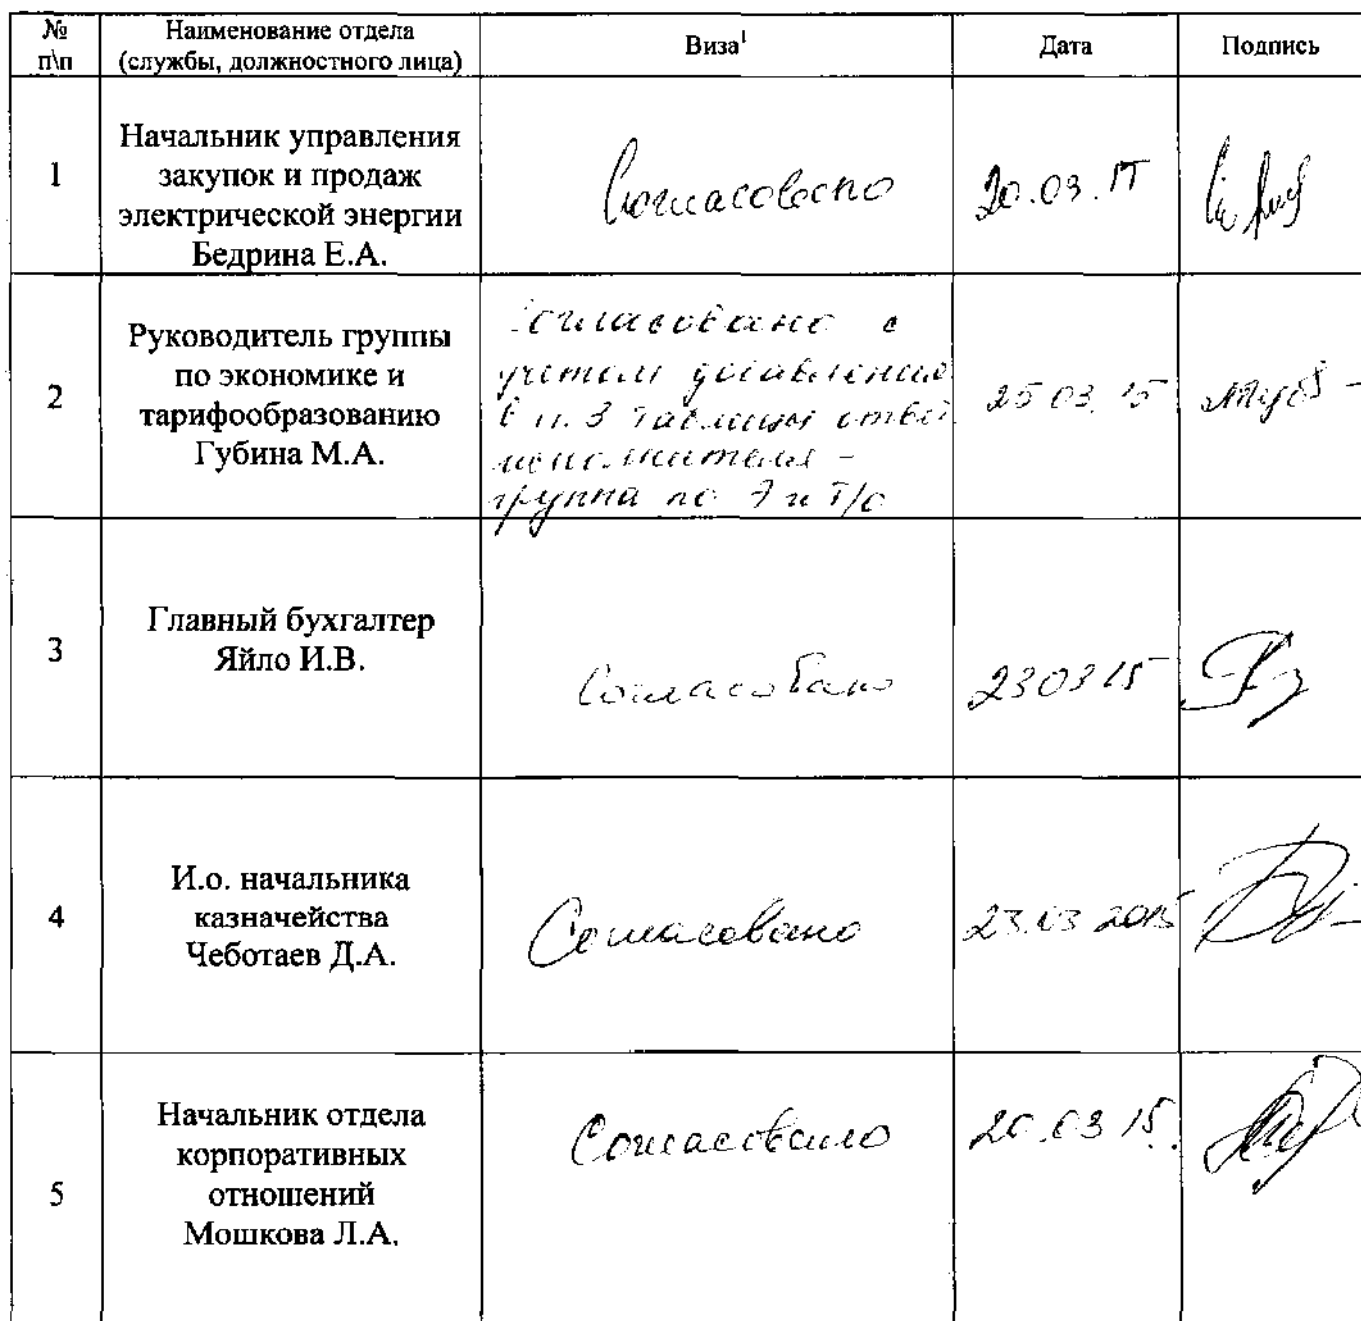 № п\п
Наименование отдела
(службы, должностного лица)
Виза¹
Дата
Подпись
1
Начальник управления
закупок и продаж
электрической энергии
Бедрина Е.А.
Согласовано
20.03.15
2
Руководитель группы
по экономике и
тарифообразованию
Губина М.А.
Согласовано с
учетом добавления
в п. 3 таблицы ответ.
исполнителя -
группа по Э и Т/о
25 03. 15
3
Главный бухгалтер
Яйло И.В.
Согласовано
23 03 15
4
И.о. начальника
казначейства
Чеботаев Д.А.
Согласовано
23.03 2015
5
Начальник отдела
корпоративных
отношений
Мошкова Л.А.
Согласовано
20.03 15.